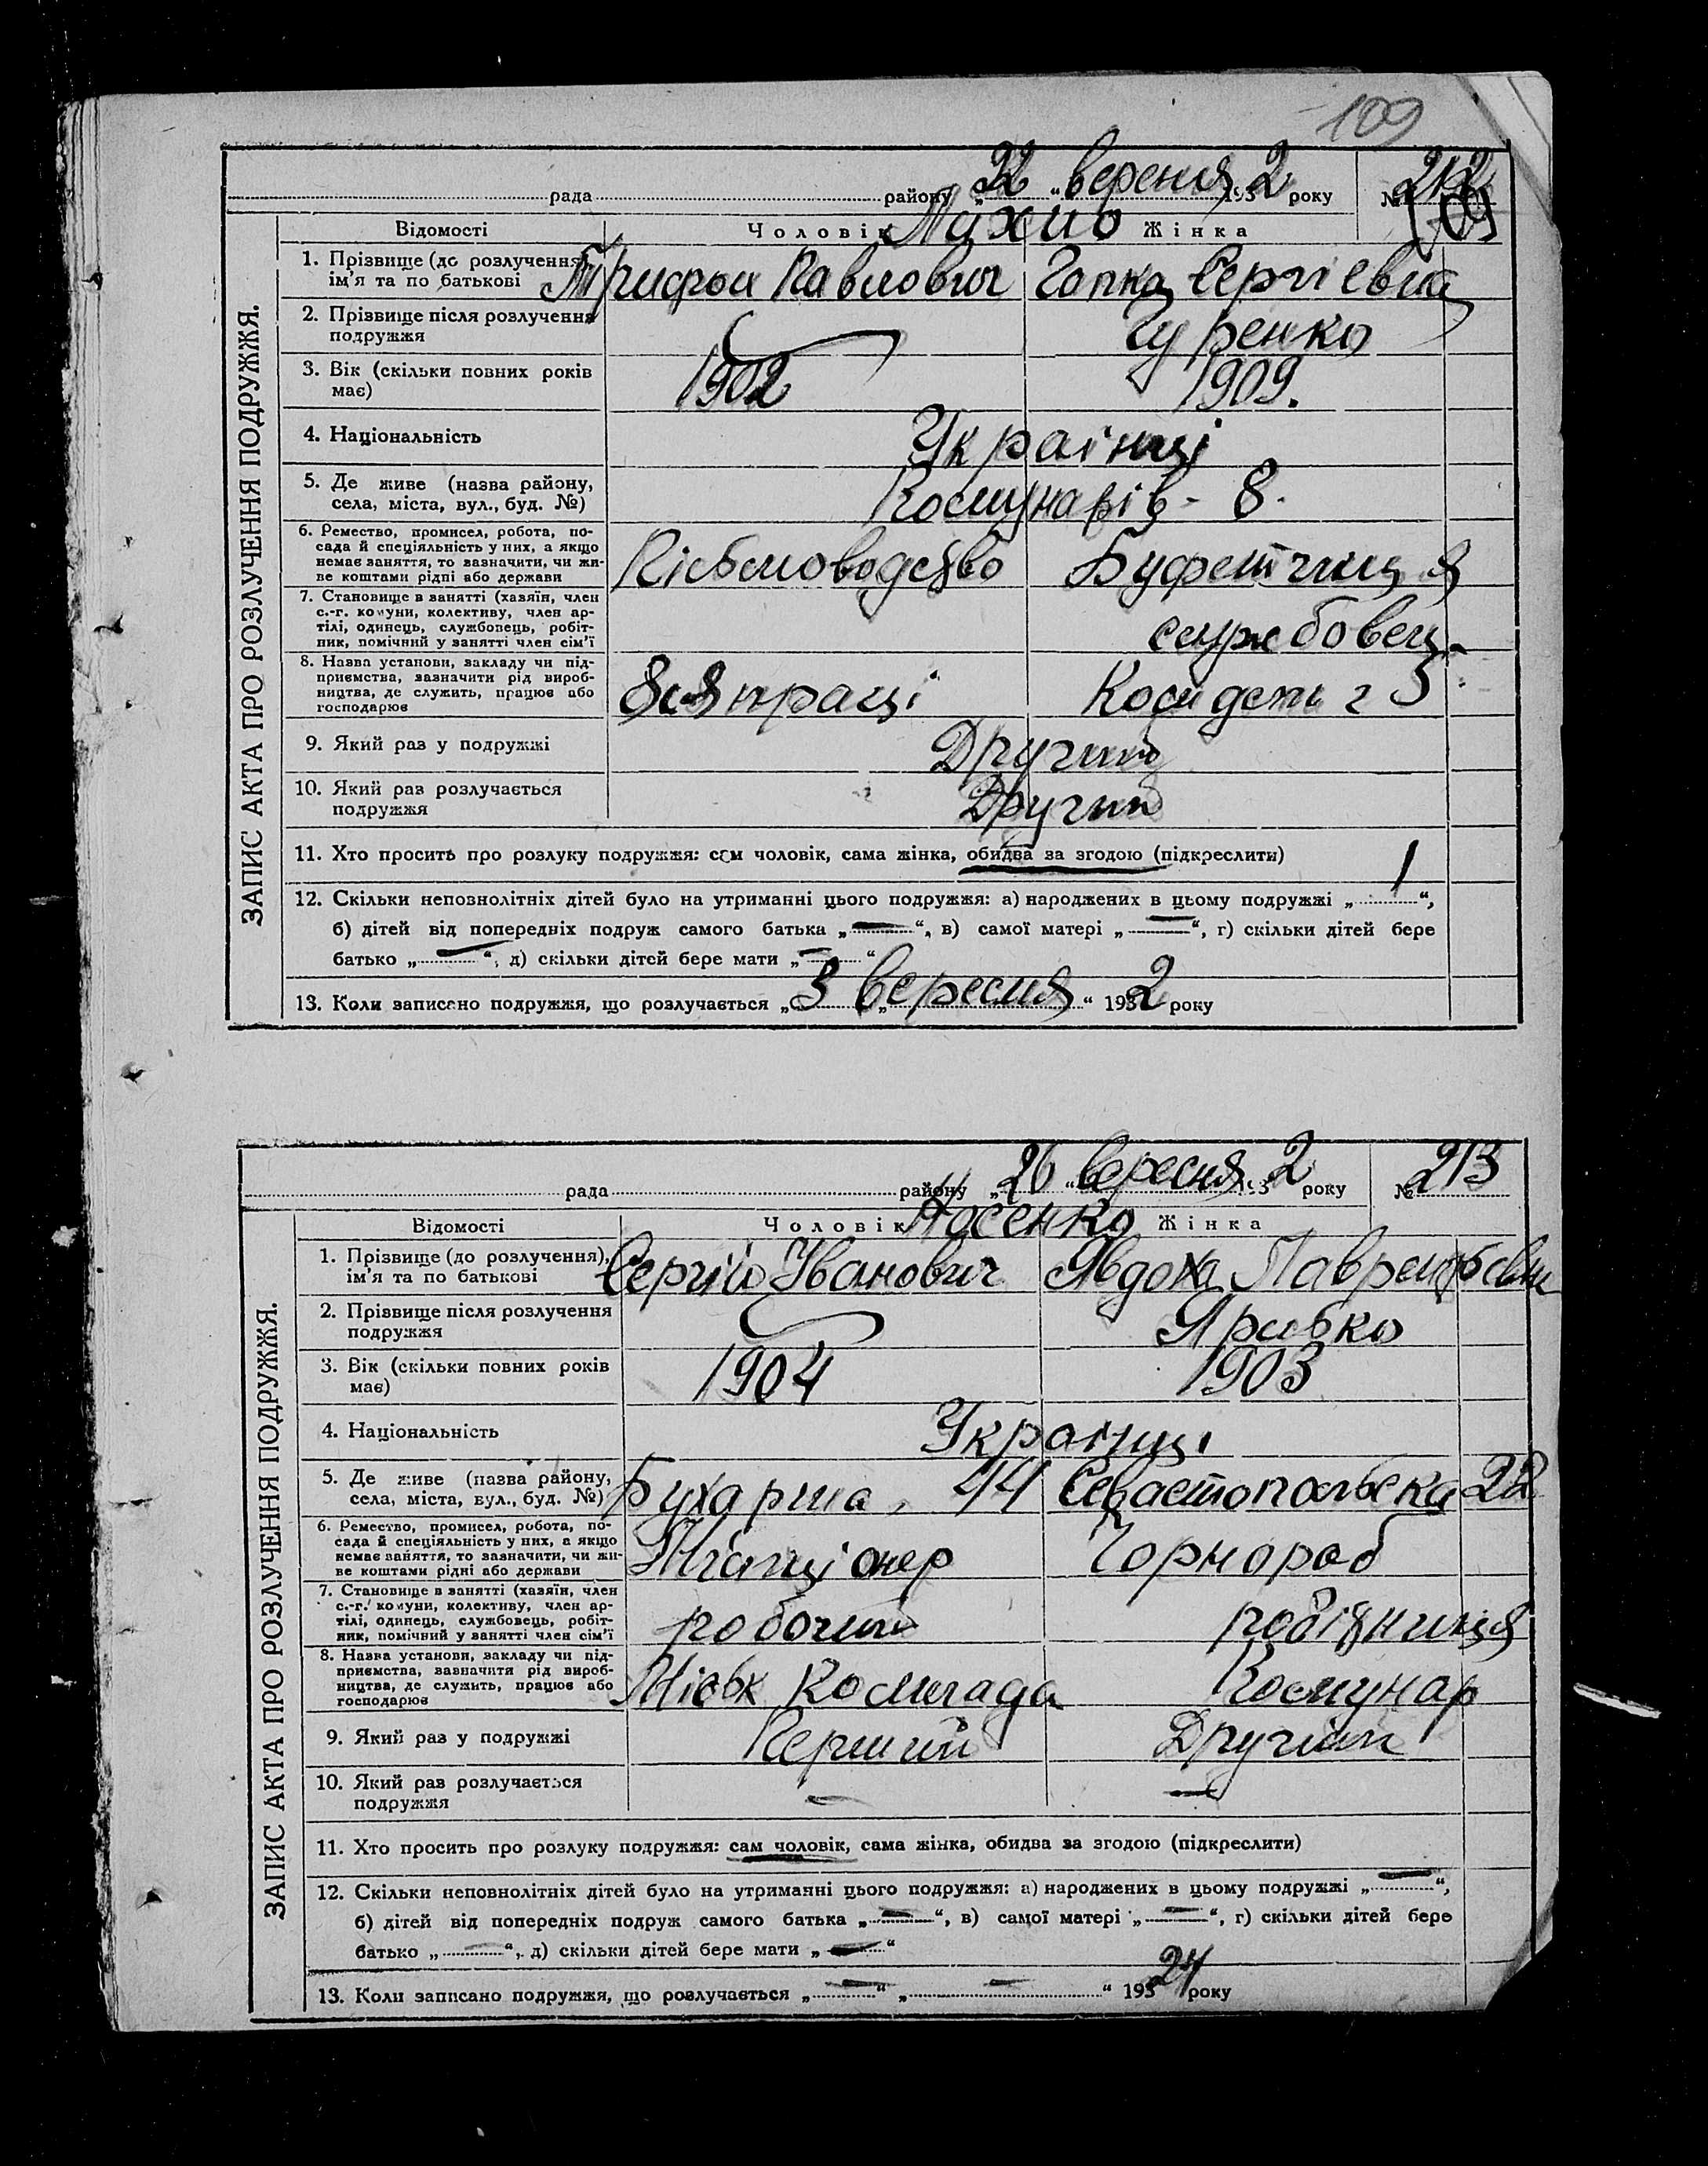 109
рада района „22“ вересня 1932 року № 212
109
Відомості Чоловік Махно Жінка
1. Прізвище (до розлучення), ім'я та по батькові Трифон Павлович Гапка Сергієвна
2. Прізвище після розлучення подружжя Гуренко
3. Вік (скільки повних років має) 1902 1909.
4. Національність Українці
5. Де живе (назва району, села, міста, вул., буд. №) Комунарів - 8.
6. Ремество, промисел, робота, посада й спеціяльність у них, а якщо немає заняття, то зазначити, чи живе коштами рідні або держави Буфетчиця
7. Становище в занятті (хазяїн, член с.-г. комуни, колективу, член артілі, одинець, службовець, робітник, помічний у занятті член сім'ї службовец.
8. Назва установи, закладу чи підприємства, зазначити рід виробництва, де служить, працює або господарює праці
9. Який раз у подружжі Другий
10. Який раз розлучається подружжя Другий
11. Хто просить про розлуку подружжя: сам чоловік, сама жінка, обидва за згодою (підкреслити)
12. Скільки неповнолітніх дітей було на утриманні цього подружжя: а) народжених в цьому подружжі „1“,
б) дітей від попередніх подруж самого батька „—“, в) самої матері „—“, г) скільки дітей бере
батько „—“, д) скільки дітей бере мати „—“
13. Коли записано подружжя, що розлучається „3 вересня“ 1932 року
ЗАПИС АКТА ПРО РОЗЛУЧЕННЯ ПОДРУЖЖЯ.
рада району „26“ вересня 1932 року № 213
Відомості Чоловік Носенко Жінка
1. Прізвище (до розлучення), ім'я та по батькові Сергій Іванович Явдоха Лаврентьевна
2. Прізвище після розлучення подружжя
3. Вік (скільки повних років має) 1904 1903
4. Національність Українці
5. Де живе (назва району, села, міста, вул., буд. №) Бухарина, 44 Севастопольська 22
6. Ремество, промисел, робота, посада й спеціяльність у них, а якщо немає заняття, то зазначити, чи живе коштами рідні або держави Чорнороб
7. Становище в занятті (хазяїн, член с.-г. комуни, колективу, член артілі, одинець, службовець, робітник, помічний у занятті член сім'ї робочий робітниця
8. Назва установи, закладу чи підприємства, зазначити рід виробництва, де служить, працює або господарює Комунар
9. Який раз у подружжі Перший Другий
10. Який раз розлучається подружжя — —
11. Хто просить про розлуку подружжя: сам чоловік, сама жінка, обидва за згодою (підкреслити)
12. Скільки неповнолітніх дітей було на утриманні цього подружжя: а) народжених в цьому подружжі „—“,
б) дітей від попередніх подруж самого батька „—“, в) самої матері „—“, г) скільки дітей бере
батько „“, д) скільки дітей бере мати „—“
13. Коли записано подружжя, що розлучається „—“ „—“ 193 24 року
ЗАПИС АКТА ПРО РОЗЛУЧЕННЯ ПОДРУЖЖЯ.